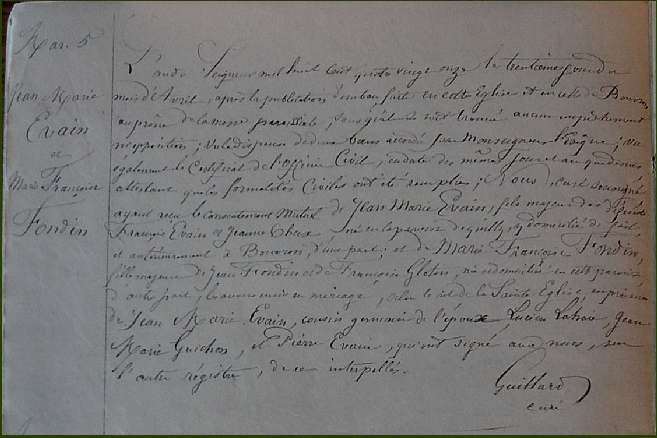 Mar. 5
Jean Marie
Evain
et
Marie Françoise
Fondin
L'an du Seigneur mil huit cent quatre vingt onze le trentième jour du
mois d'Avril, après la publication d'un ban faite en cette Eglise et en celle de Bouvron
au prône de la messe paroissiale, sans qu'il se soit trouvé aucun empêchement
ni opposition, vu la dispense de deux bans accordée par Monseigneur l'Evêque ; vu
également le Certificat de l'Officier Civil, en date des mêmes jour et an que dessus
attestant que les formalités Civiles ont été remplies ; Nous, curé soussigné
ayant reçu le consentement Mutuel de Jean Marie Evain, fils majeur des défunts
François Evain et Jeanne né en la paroisse de quilly, y domicilié de fait
et antérieurement à Bouvron, d'une part ; et de Marie Françoise Fondin,
fille majeure de Jean Fondin et de Françoise Glotin, née et domiciliée en cette paroisse,
d'autre part ; les avons unis en mariage, selon le rit de la Sainte Eglise, en présence
de Jean Marie Evain, cousin germain de l'époux Lucien Jean
Marie Guichon, et Pierre Evain, qui ont signé avec nous, sur
l'autre régistre, de ce interpellés.
Guillard
curé